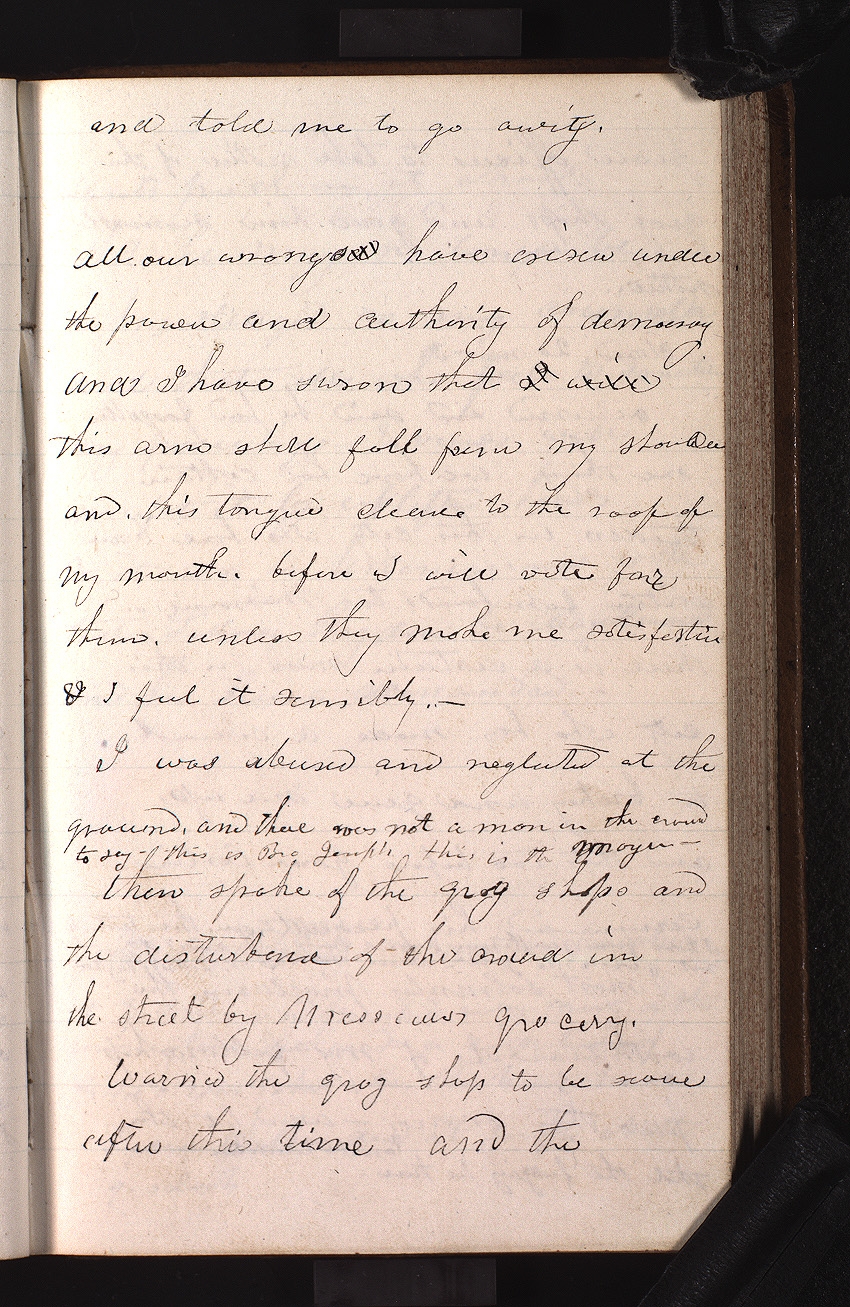 and told me to go away.
all our wrongs have arisen under
the power and authority of democracy
and I have sworn that
this arm shall fall from my shoulder
and. this tongue cleave to the roof of
my mouth. before I will vote for
them. unless they make me satisfaction
& I feel it sensibly.—
I was abused and neglected at the
ground, and there was not a man in the crowd
to say— this is Bro Joseph, this is the mayor—
then spoke of the grog shops and
the disturbance of the crowd in
the street by grocery.
warned the grog shops to be scarce
after this time and the